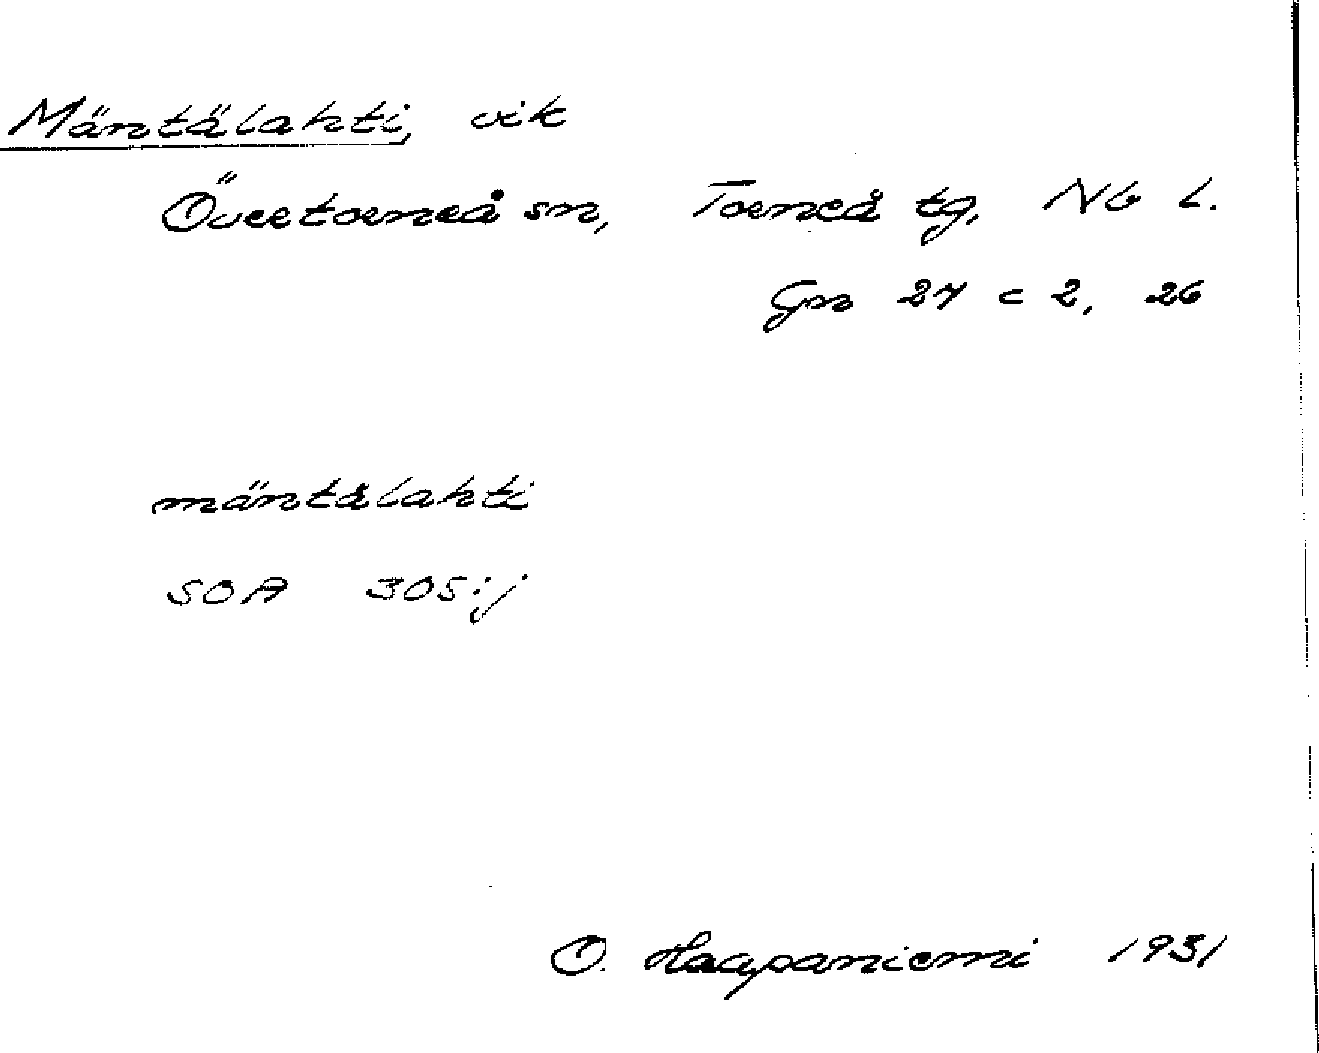 Mäntälahti, vik
Övertorneå sn, Torneå tg, Nb L.
Gn 27 c 2, 26
mäntälahti
SOA 305:j
O. Haapaniemi 1931